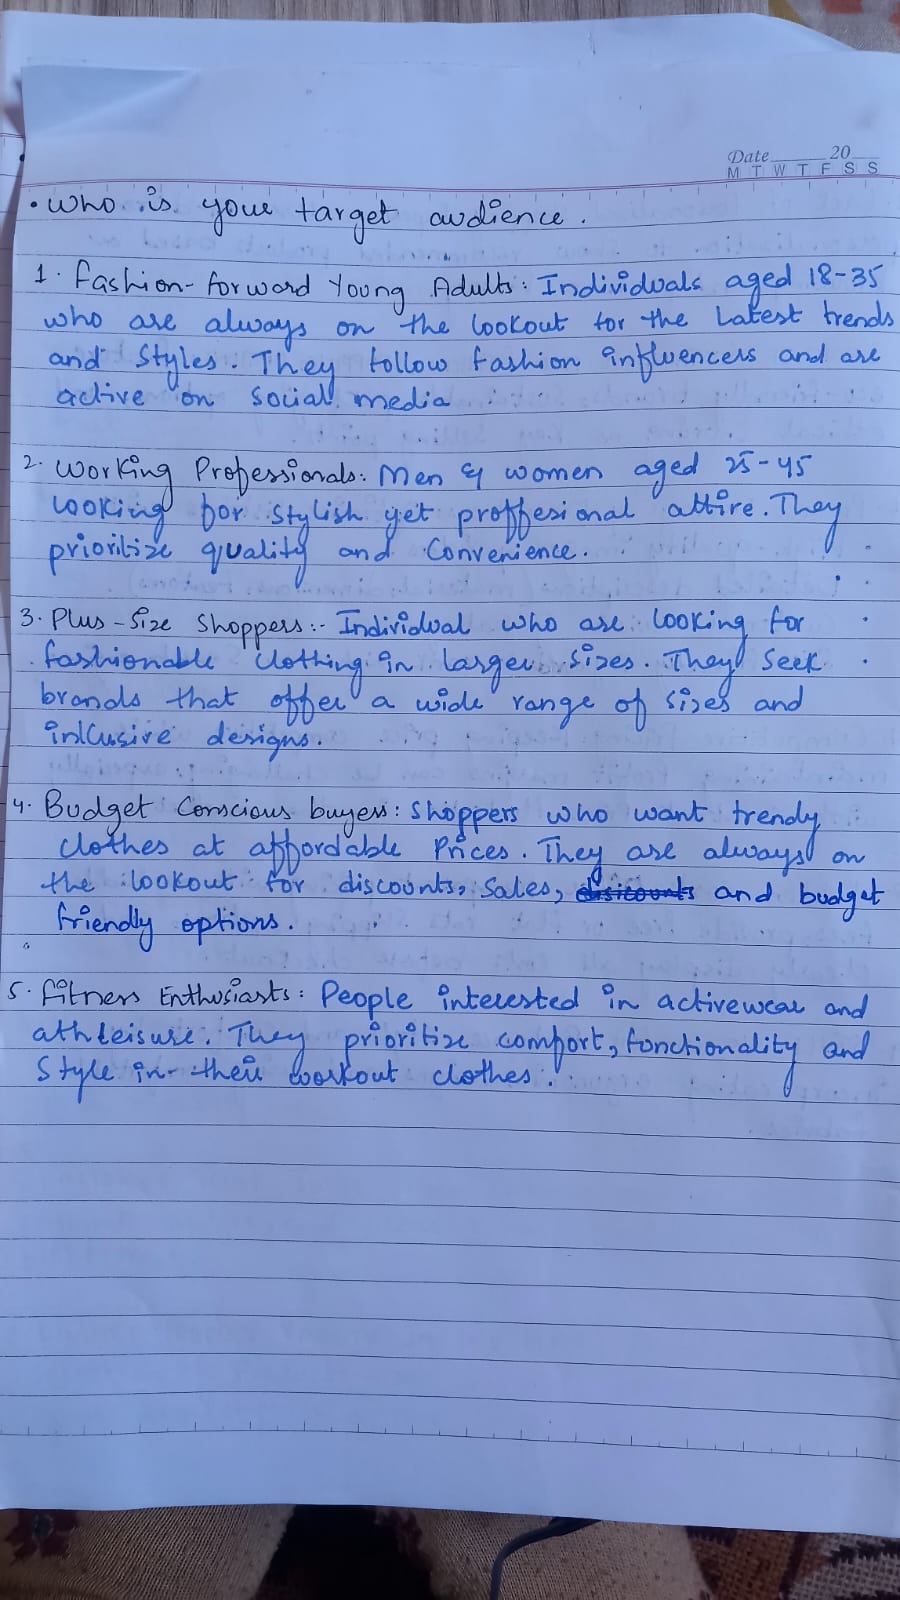 Date 20
M T W T F S S
• Who is your target audience.
1. Fashion-forward Young Adults: Individuals aged 18-35
who are always on the lookout for the Latest trends
and Styles. They follow fashion influencers and are
active on Social media
2. Working Professionals: Men & women aged 25-45
looking for stylish yet proffesional attire. They
prioritize quality and Convenience.
3. Plus-Size Shoppers:- Individual who are looking for
fashionable clothing in larger sizes. They Seek
brands that offer a wide range of sizes and
inlcusive designs.
4. Budget Conscious buyers: Shoppers who want trendy
clothes at affordable Prices. They are always on
the lookout for discounts, Sales, disicounts and budget
friendly options.
5. Fitness Enthusiasts: People interested in activewear and
athleisure. They prioritize comfort, functionality and
Style in their workout clothes.